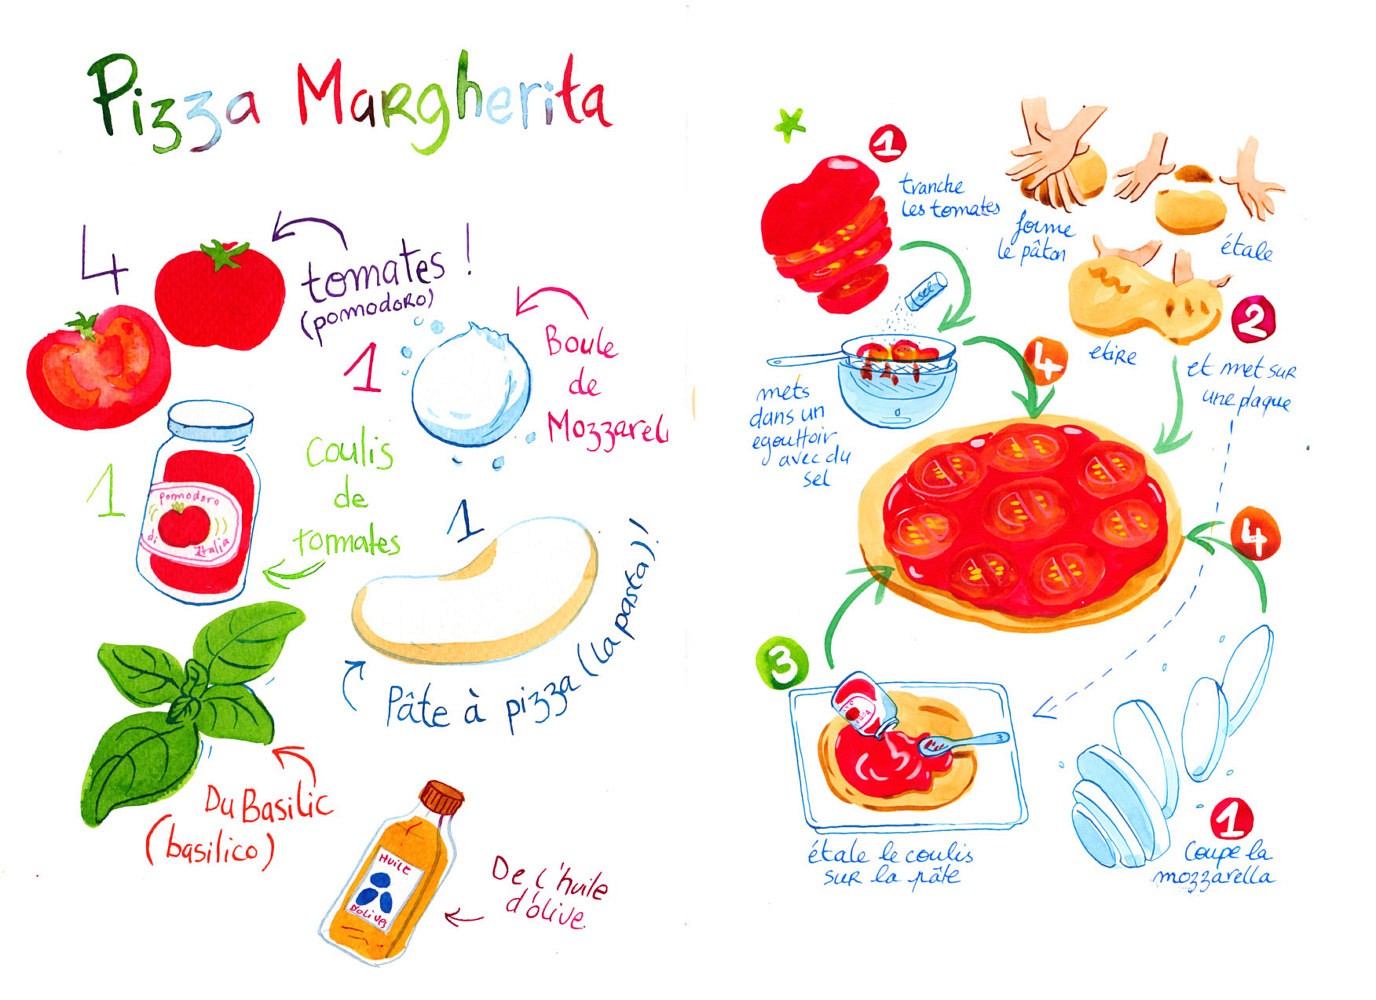 Pizza Margherita
4
tomates !
(pomodoro)
1
Boule
de
Mozzarel
1
Coulis
de
tomates
pomodoro
di Italia
1
Pâte à pizza (la pasta)!
Du Basilic
(basilico)
HUILE
D'OLIVES
De l'huile
d'olive
1
tranche
les tomates
sel
mets
dans un
egouttoir
avec du
sel
forme
le pâton
étale
etire
2
et met sur
une plaque
4
4
3
étale le coulis
sur la pâte
1
Coupe la
mozzarella